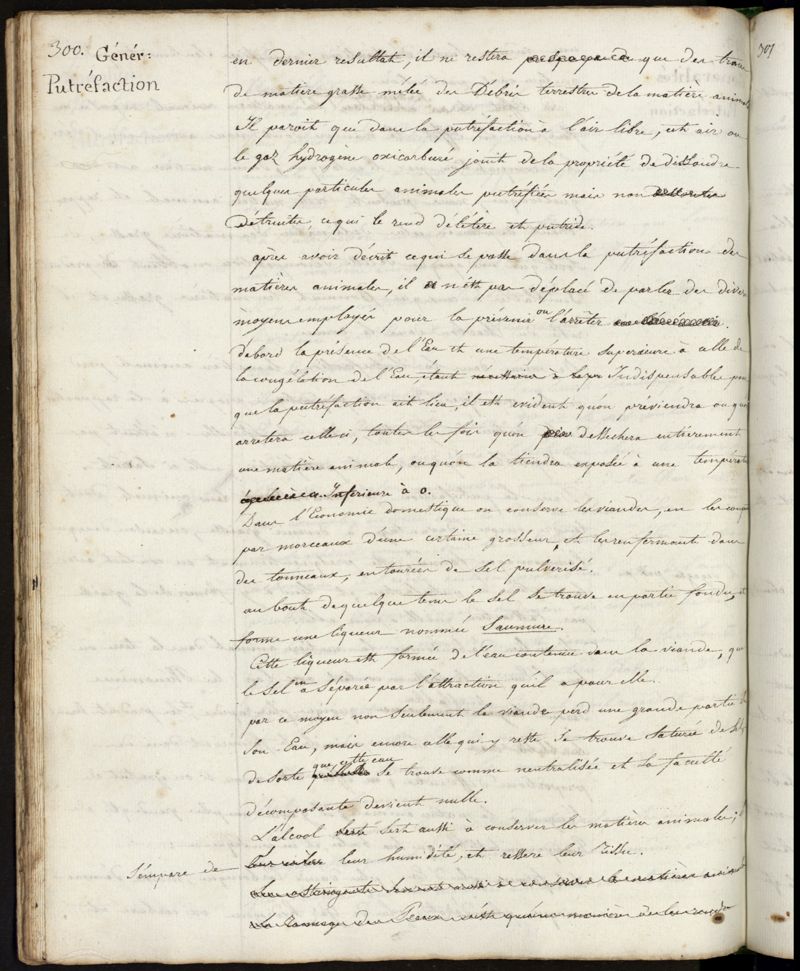 300. Génér:
Putréfaction
301
en dernier resultat, il ne restera que des traces
de matiere grasse mélée des Débris terrestres de la matiere animale
Il paroit que dans la putréfaction à l'air libre, cet air ou
le gaz hydrogène oxicarburé jouit de la propriété de dissoudre
quelques particules animales putréfiées mais non
détruites, ce qui le rend délétère et putride.
après avoir décrit ce qui se passe dans la putréfaction des
matières animales, il n'est pas déplacé de parler des divers
moyens employés pour la prévenir ou l'arreter
D'abord la présence de l'Eau et une température superieure à celle de
la congélation de l'Eau, étant Indispensable pour
que la putréfaction ait lieu, il est evident qu'on préviendra ou qu'on
arretera celleci, toutes les fois qu'on dessechera entièrement
une matière animale, ou qu'on la tiendra exposée à une température
Inférieure à 0.
Dans l'Economie domestique on conserve les viandes, en les coupant
par morceaux d'une certaine grosseur, et les renfermant dans
des tonneaux, entourées de Sel pulverisé.
au bout de quelque tems le sel se trouve en partie fondu, et
forme une liqueur nommée Saumure.
Cette liqueur est formée de l'eau contenue dans la viande, que
le Sel en a séparée par l'attraction qu'il a pour elle.
par ce moyen non seulement la viande perd une grande partie de
son Eau, mais encore celle qui y reste se trouve saturée de Sel,
de sorte que cette eau se trouve comme neutralisée et sa faculté
décomposante devient nulle.
L'alcool sert aussi à conserver les matières animales;
S'empare de leur humidité, et resserre leur Tissu.